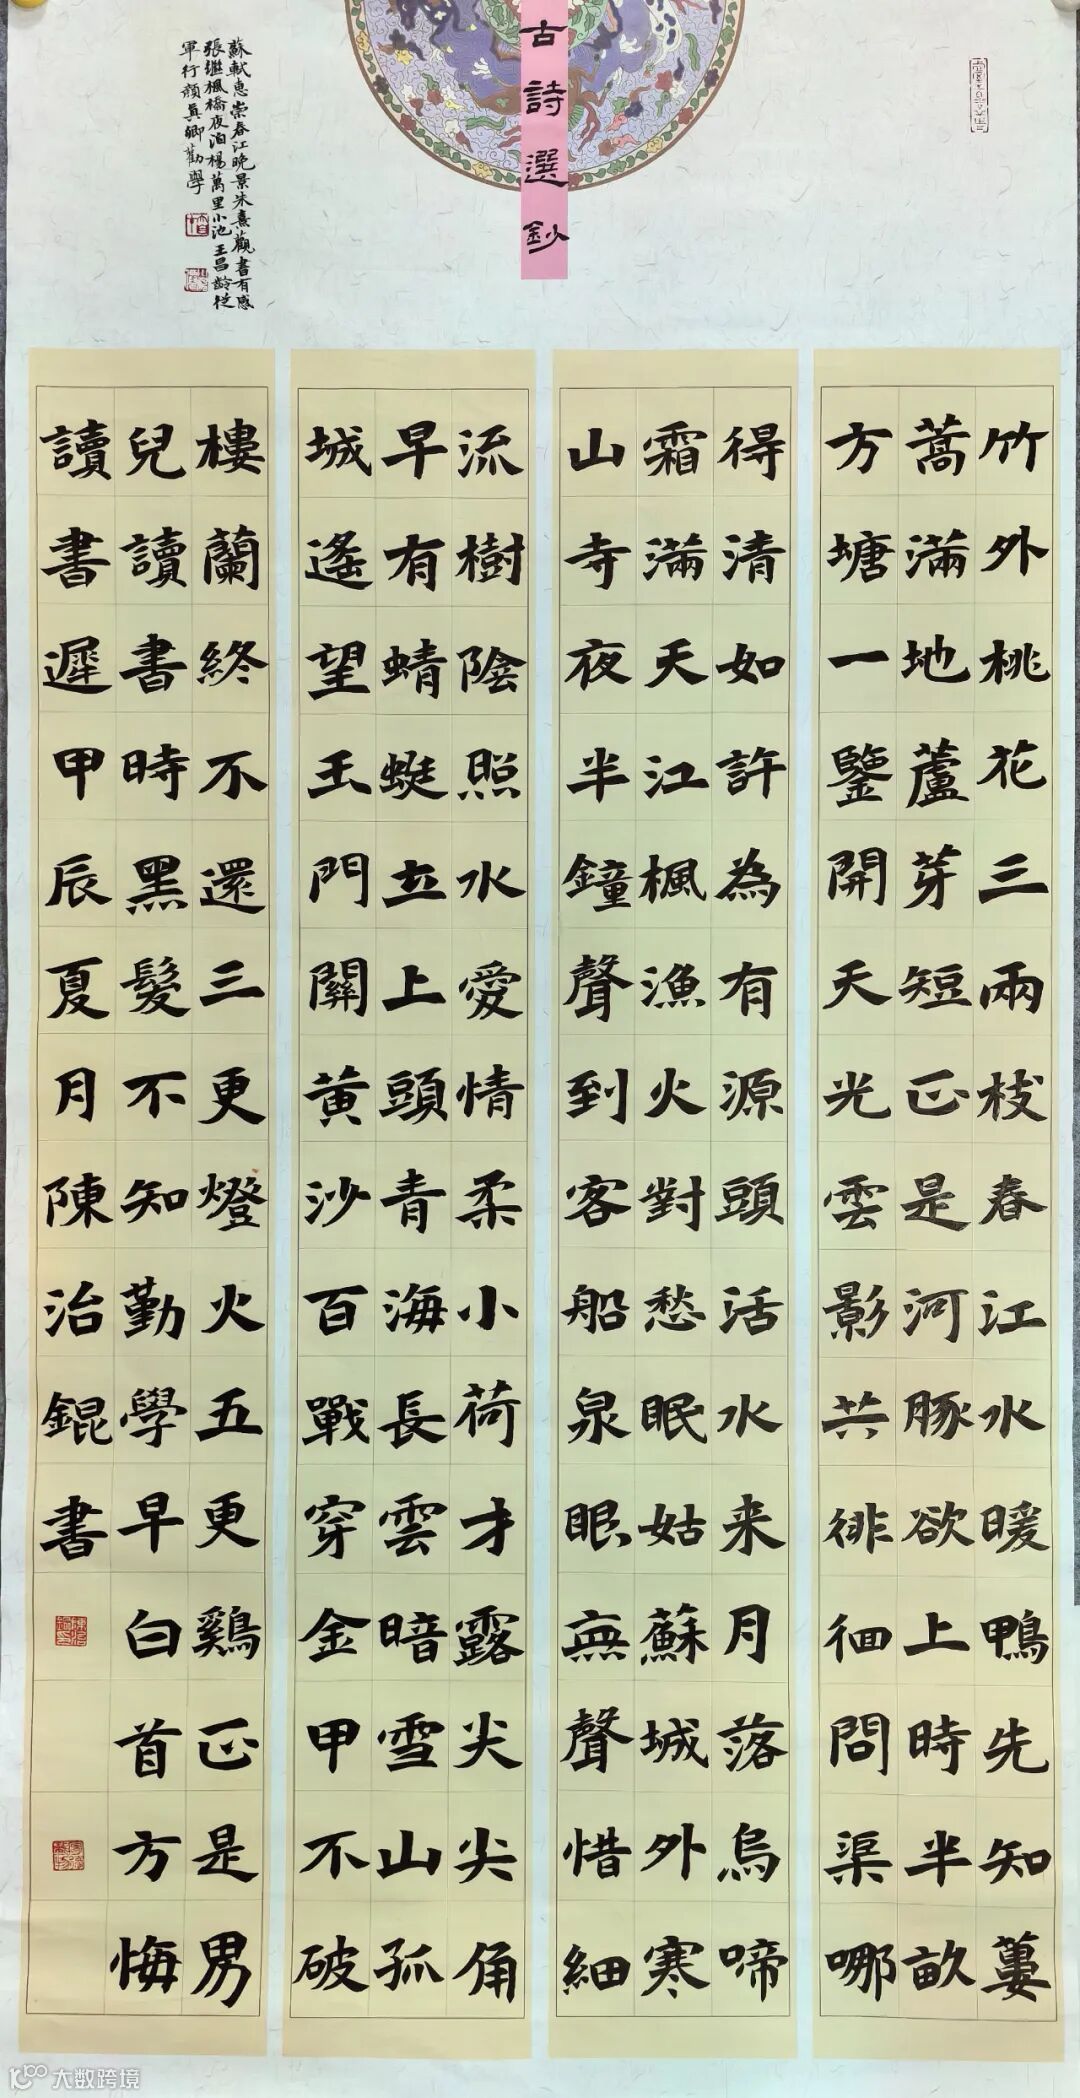 古詩選鈔
竹外桃花三兩枝春江水暖鴨先知蔞
蒿滿地蘆芽短正是河豚欲上時半畝
方塘一鑒開天光雲影共徘徊問渠哪
得清如許為有源頭活水来月落烏啼
霜滿天江楓漁火對愁眠姑蘇城外寒
山寺夜半鐘聲到客船泉眼無聲惜細
流樹陰照水愛情柔小荷才露尖尖角
早有蜻蜓立上頭青海長雲暗雪山孤
城遙望玉門關黃沙百戰穿金甲不破
樓蘭終不還三更燈火五更鷄正是男
兒讀書時黑髮不知勤學早白首方悔
讀書遲甲辰夏月陳治錕書
蘇軾惠崇春江晚景朱熹觀書有感
張繼楓橋夜泊楊萬里小池王昌齡從
軍行顏真卿勸學
大数跨境